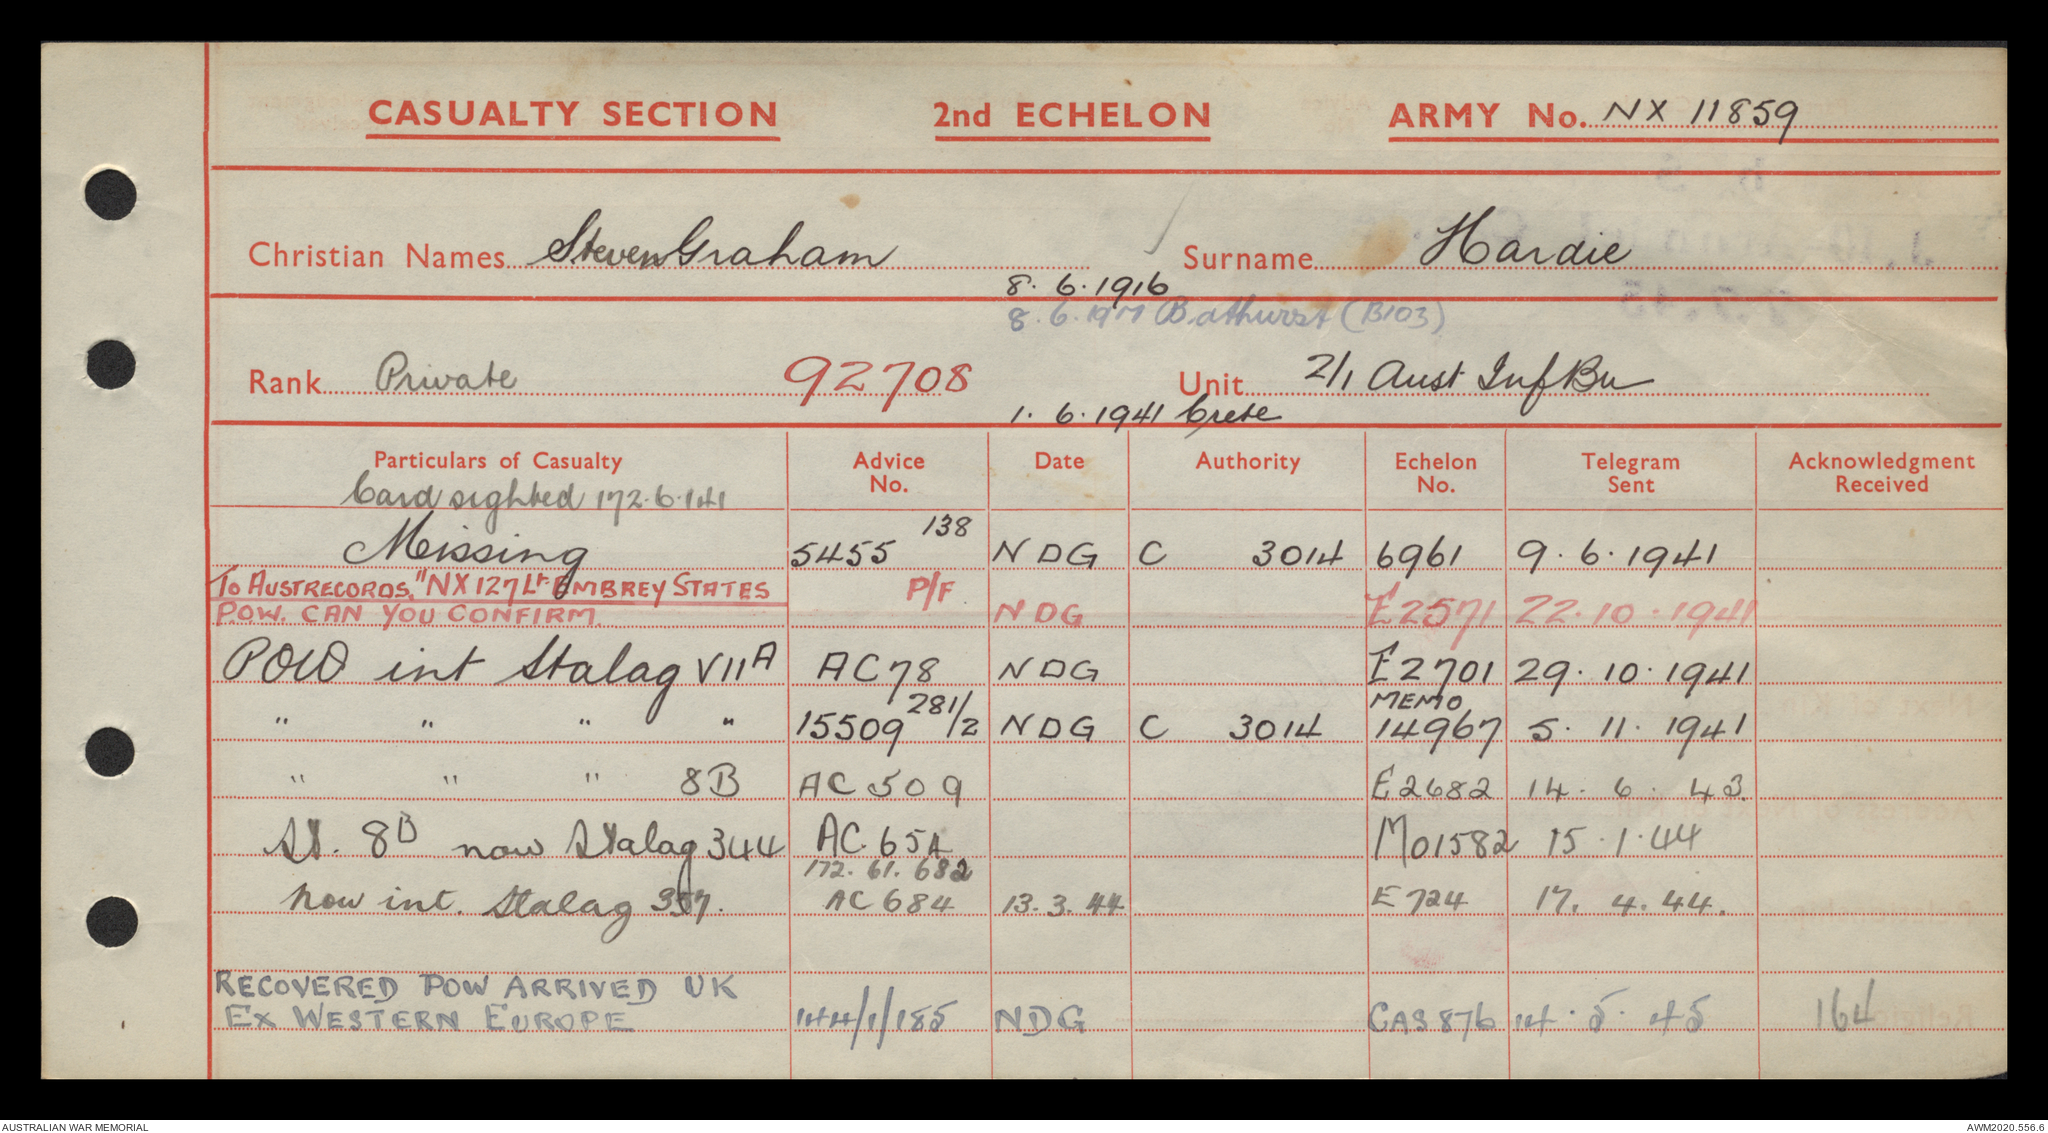 CASUALTY SECTION 2nd ECHELON ARMY No. NX 11859
Christian Names Steven Graham Surname Hardie
8.6.1916
8.6.1917 Bathurst (B103)
Rank Private 92708 Unit 2/1 Aust Inf Bn
1.6.1941 Crete
Particulars of Casualty Advice No. Date Authority Echelon No. Telegram Sent Acknowledgment Received
Card sighted 172.6.141
Missing 5455 138 NDG C 3014 6961 9.6.1941
To AUSTRECORDS. "NX127 Lt EMBREY STATES P/F
P.O.W. CAN YOU CONFIRM. NDG E2571 22.10.1941
POW int Stalag VIIA AC78 NDG E2701 29.10.1941
" " " " 15509 281/2 NDG C 3014 MEMO 14967 5.11.1941
" " " 8B AC 509 E2682 14.6.43.
St. 8B now Stalag 344 AC.654 M01582 15.1.44
172.61.682
now int. Stalag 357. AC 684 13.3.44 E724 17.4.44.
RECOVERED POW ARRIVED UK
EX WESTERN EUROPE 144/1/185 NDG CAS876 14.5.45 164
AUSTRALIAN WAR MEMORIAL AWM2020.556.6